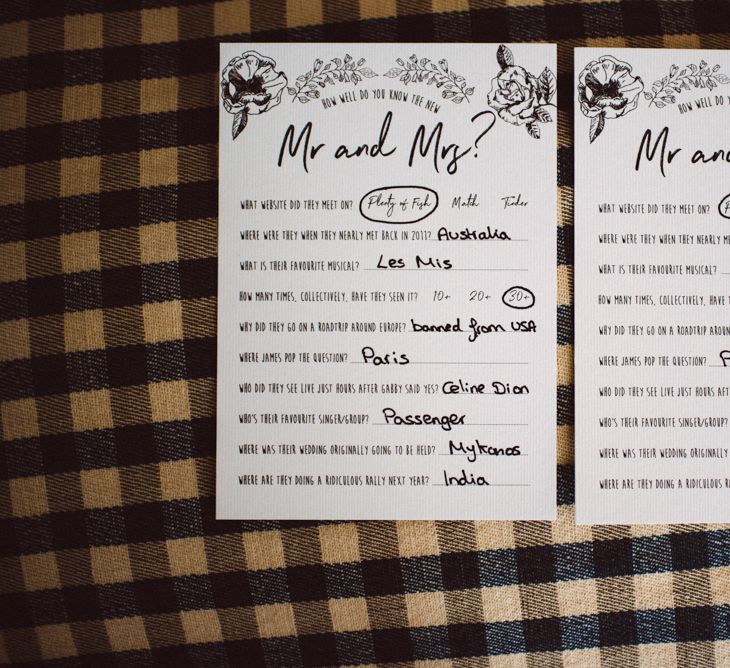 HOW WELL DO YOU KNOW THE NEW
Mr and Mrs?
WHAT WEBSITE DID THEY MEET ON? Plenty of Fish Match Tinder
WHERE WERE THEY WHEN THEY NEARLY MET BACK IN 2011? Australia
WHAT IS THEIR FAVOURITE MUSICAL? Les Mis
HOW MANY TIMES, COLLECTIVELY, HAVE THEY SEEN IT? 10+ 20+ 30+
WHY DID THEY GO ON A ROADTRIP AROUND EUROPE? banned from USA
WHERE JAMES POP THE QUESTION? Paris
WHO DID THEY SEE LIVE JUST HOURS AFTER GABBY SAID YES? Celine Dion
WHO'S THEIR FAVOURITE SINGER/GROUP? Passenger
WHERE WAS THEIR WEDDING ORIGINALLY GOING TO BE HELD? Mykonos
WHERE ARE THEY DOING A RIDICULOUS RALLY NEXT YEAR? India
HOW WELL DO
Mr an
WHAT WEBSITE DID THEY MEET ON?
WHERE WERE THEY WHEN THEY NEARLY
WHAT IS THEIR FAVOURITE MUSICAL?
HOW MANY TIMES, COLLECTIVELY, HAVE
WHY DID THEY GO ON A ROADTRIP
WHERE JAMES POP THE QUESTION? P
WHO DID THEY SEE LIVE JUST HOURS AFT
WHO'S THEIR FAVOURITE SINGER/GROUP?
WHERE WAS THEIR WEDDING ORIGINALLY
WHERE ARE THEY DOING A RIDICULOUS